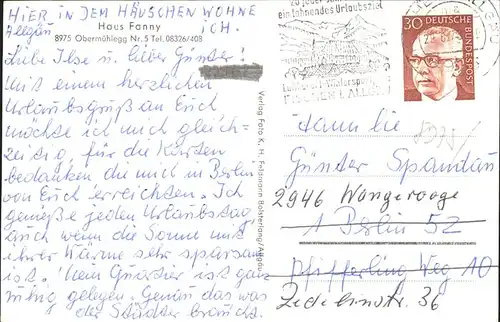 HIER IN DEM HÄUSCHEN WOHNE
ICH.
Allgäu
Haus Fanny
8975 Obermühlegg Nr. 5 Tel. 08326/408
Liebe Ilse u. lieber Günter!
Mit einem herzlichen
Urlaubsgruß an Euch
möchte ich mich gleich-
zeitig, für die Karten
bedanken die mich in Berlin
von Euch erreichten. Ich
genieße jeden Urlaubstag
auch wenn die Sonne mit
ihrer Wärme sehr sparsam
ist. Mein Quartier ist ganz
ruhig gelegen. Genau das was
der Städter braucht.
Verlag Foto K. H. Fehlmann Bolsterlang/Allgäu
ein lohnendes Urlaubsziel
Luftkurort-Wintersport
30
DEUTSCHE
BUNDESPOST
Familie
Günter Spandau
2946 Wangerooge
1 Berlin 52
Pfifferling Weg 10
Zedeliusstr. 36